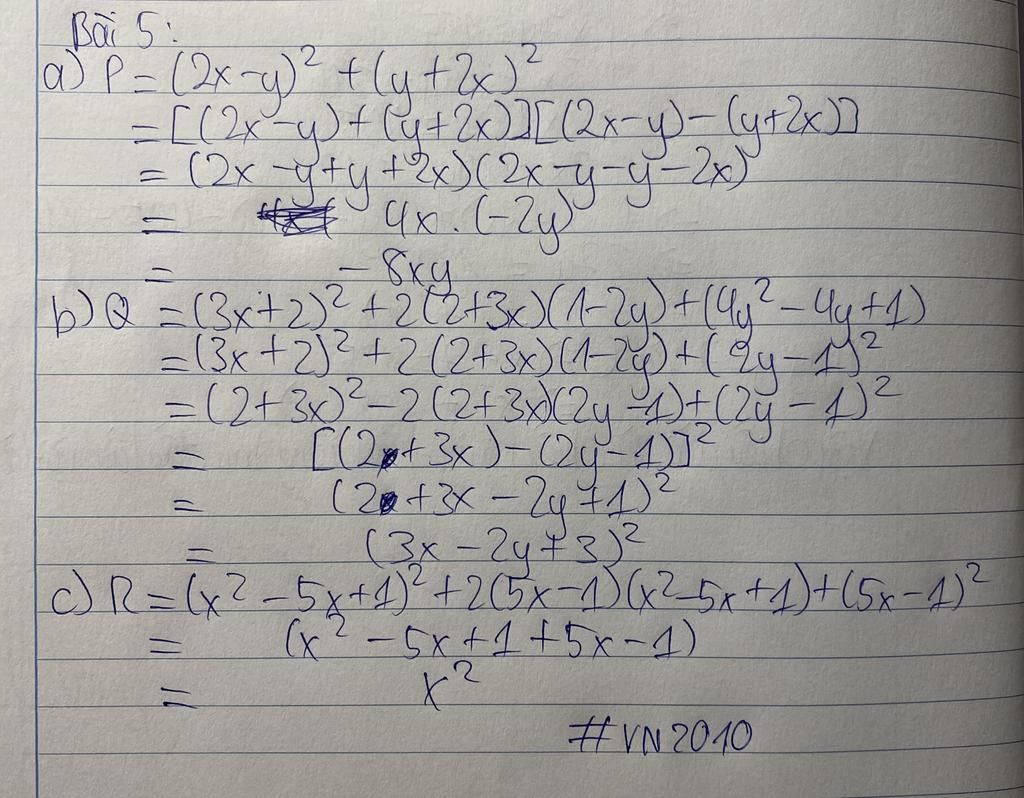 Bài 5:
a) P = (2x-y)² + (y+2x)²
= [(2x-y)+(y+2x)][(2x-y)-(y+2x)]
= (2x-y+y+2x)(2x-y-y-2x)
= 4x.(-2y)
= -8xy
b) Q = (3x+2)² + 2(2+3x)(1-2y)+(4y²-4y+1)
= (3x+2)² + 2(2+3x)(1-2y)+(2y-1)²
= (2+3x)² - 2(2+3x)(2y-1)+(2y-1)²
= [(2+3x)-(2y-1)]²
= (2+3x-2y+1)²
= (3x-2y+3)²
c) R = (x²-5x+1)² + 2(5x-1)(x²-5x+1)+(5x-1)²
= (x²-5x+1+5x-1)
= x²
#VN2010